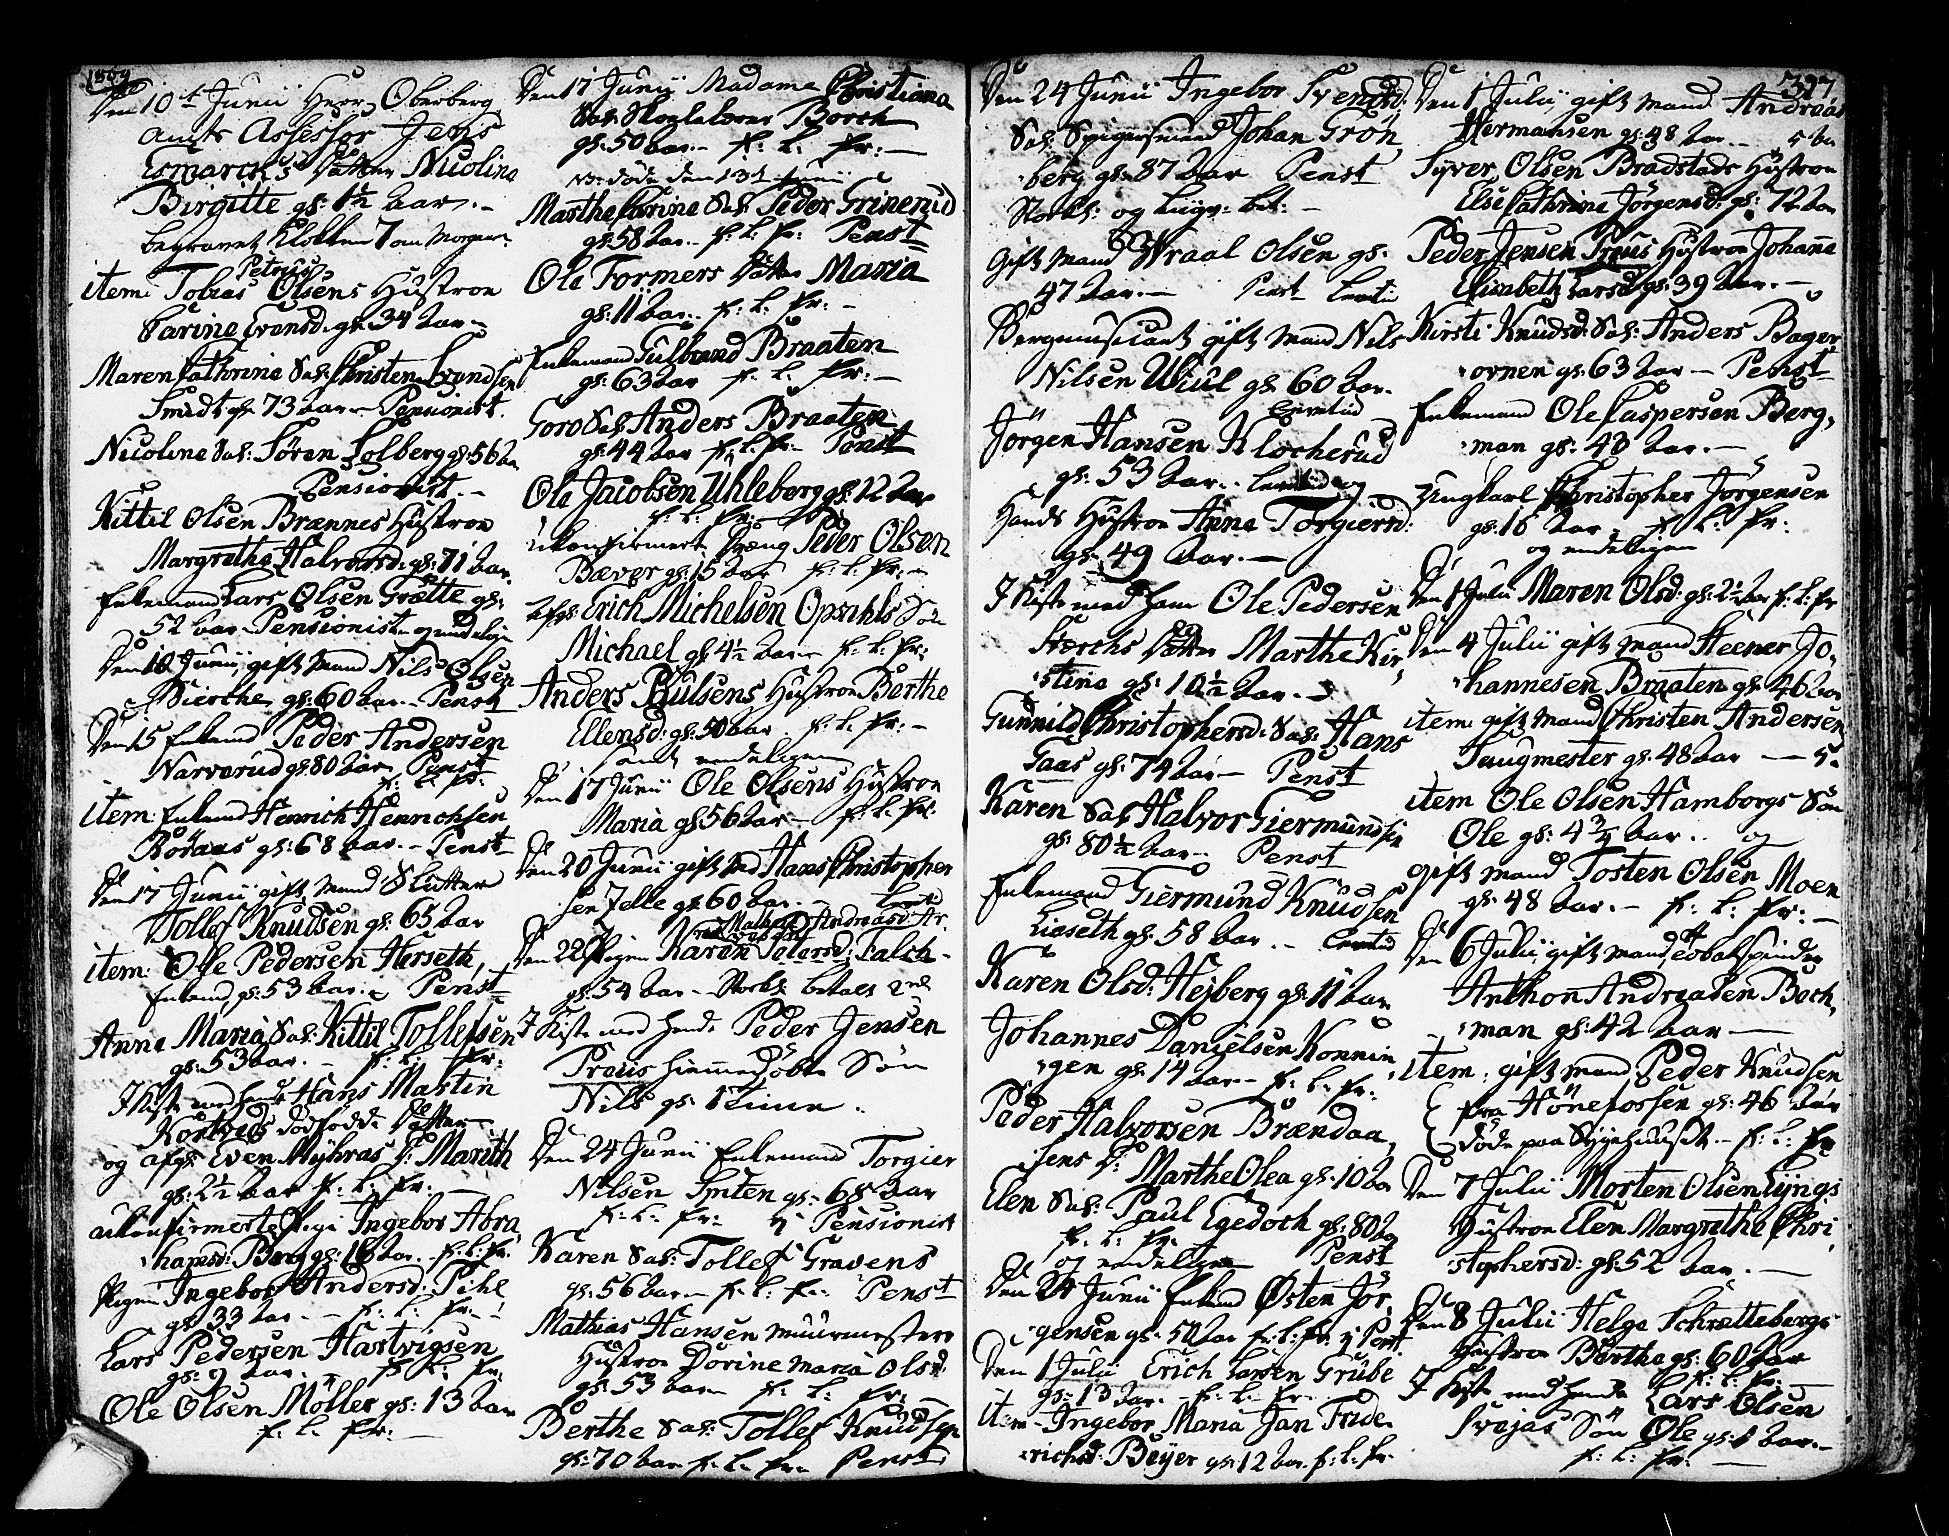 1809
Den 10de Junii Herr Oberberg
amts Assessor Jens
Esmarchs Datter Nicolina
Birgitte gl: 1½ aar.
begravet Klokken 7 om Morgen
item Tobias Petrus Olsens Hustroe
Carine Evensd. gl: 34 aar
Maren Cathrina Sal: Christen Svendsen
Smidt gl: 73 aar Pensionist.
Nicoline Sal: Sören Solberg gl: 56 aar
Pensionist.
Kittil Olsen Brænnes Hustroe
Margrethe Halvorsd. gl: 71 aar.
Enkemand Lars Olsen Grætte gl:
52 aar Pensionist og endeligen
Den 10 Junii gift Mand Nils Olsen
Bierche gl: 60 aar. Penst
Den 15 Enkemd Peder Andersen
Narverud gl: 80 aar Penst
f: l: fr:
item: Enkemd Henrich Henrichsen
Röraas gl: 68 aar. Penst
Den 17 Junii gift Mand Slutter
Tollef Knudsen gl: 65 aar
item: Ole Pedersen Herseth,
Enkemd gl: 53 aar. Penst
Anne Maria Sal: Kittil Tollefsen
gl: 53 aar. f: l: fr:
I Kiste med hende Hans Mastin
dödfödde Datter
og afgl: Even Myhras D: Marith
gl: 2½ aar f: l: fr:
ukonfirmerte Pige Ingebor Abra
hamsd: Berg gl: 16 aar. f: l: fr:
Pigen Ingebor Andersd: Pihl
gl: 33 aar. f: l: fr:
Lars Pedersen Hartvigsen
gl: 9 aar. f: l: fr:
Ole Olsen Möller gl: 13 aar
f: l: fr:
Den 17 Junii Madame Christiana
Sal: Borch
gl: 50 aar. f: l: fr:
NB: døde den 13de Junii
Marthe Carine Sal: Peder Grinerud
gl: 58 aar. f: l: fr: Penst
Ole Formers Datter Maria
gl: 11 aar. f: l: fr:
Enkemand Gulbrand Braaten
gl: 63 aar f: l: fr:
Goro Sal: Anders Braaten
gl: 44 aar f: l: fr: Penst
Ole Jacobsen Uhleberg gl: 12 aar
f: l: fr:
ukonfirmert Dreng Peder Olsen
Bæver gl: 15 aar f: l: fr:
afgl: Erich Michelsen Opsahls Sön
Michael gl: 4½ aar f: l: fr:
Anders Pulsens Hustroe Berthe
Ellensd: gl: 50 aar f: l: fr:
samt endeligen
Den 17 Junii Ole Olsens Hustroe
Maria gl: 56 aar f: l: fr:
Den 20 Junii gift Md Hans Christopher
sen Felle gl: 60 aar.
Den 22 Pigen Karen Petersd: Falch
gl: 54 aar betalt
I Kiste med hende Peder Jensen
Preus hiemmedöbte Sön
Nils gl: 1 time.
Den 24 Junii Enkemand Torgier
Nilsen Smten gl: 68 aar
f: l: fr: Pensionist
Karen Sal: Tollef Gravens
gl: 56 aar f: l: fr: Penst
Mathias Hansen Muurmesters
Hustroe Dorine Maria Olsd:
gl: 53 aar f: l: fr:
Berthe Sal: Tollef Knudsen
gl: 70 aar f: l: fr: Penst
327.
Den 24 Junii Ingebor Svendsd:
Sal: Johan Grön,
berg gl: 87 aar Penst
og
Gift Mand Wraal Olsen gl:
47 aar. Penst
Bergmusicant gift Mand Nils
Nilsen Wiul gl: 60 aar.
Jörgen Hansen Klocherud
gl: 53 aar. og
Hands Hustroe Anne Torgiersd:
gl: 49 aar.
I Kiste med ham Ole Pedersen
Storchs Datter Marthe Kir,
stina gl: 10½ aar.
Gunnild Christophersd: Sal: Hans
Gaas gl: 74 aar Penst
Karen Sal: Halvor Giermundsen
gl: 80½ aar. Penst
Enkemand Giermund Knudsen
Liaseth gl: 58 aar.
Karen Olsd: Hesberg gl: 11 aar
Johannes Danielsen Konnin
gen gl: 14 aar f: l: fr:
Peder Halvorsen Brændaa,
sens D: Marthe Olea gl: 10 aar
Elen Sal: Paul Egedoch gl: 80 aar
f: l: fr: Penst
og endeligen
Den 24 Junii Enkemd Østen Jör,
gensen gl: 50 aar f: l: fr: Penst.
Den 1 Julii Erich Larsen Grübe
gl: 13 aar. f: l: fr:
item Ingebor Maria Jan Fride
richsd: Beyer gl: 12 aar. f: l: fr:
Den 1 Julii gift Mand Andreas
Hermansen gl: 48 aar.
Syver Olsen Bradstads Hustroe
Else Cathrine Jörgensd: gl: 72 aar
Peder Jensen Preus Hustroe Johanne
Elisabeth Larsd gl: 39 aar.
Kirsti Knudsd: Sal: Anders Bager
ovnen gl: 63 aar Penst
Enkemand Ole Caspersen Berg,
man gl: 48 aar.
Ungkarl Christopher Jörgensen
gl: 16 aar f: l: fr:
og endeligen
Den 1 Julii Maren Olsd: gl: 2½ aar f: l: fr
Den 4 Julii gift Mand Steener Jo,
hannesen Braaten gl: 46 aar
item gift Mand Christen Andersen
Saugmester gl: 48 aar
item Ole Olsen Hamborgs Sön
Ole gl: 4¾ aar. og
gift Mand Tosten Olsen Moen
gl: 48 aar. f: l: fr:
Den 6 Julii gift Mand Tobakspinder
Anthon Andreasen Boch,
man gl: 42 aar
item: gift Mand Peder Knudsen
fra Hönefossen gl: 46 aar
døde paa Sygehuuset. f: l: fr
Den 7 Julii Morten Olsen Lyngs
Hustroe Elen Margrethe Chri,
stophersd: gl: 52 aar.
Den 8 Julii Helge Schrettebergs
Hustroe Berthe gl: 60 aar
f: l: fr:
I Kiste med hende Lars Olsen
Svejas Sön Ole gl: 1 aar.
f: l: fr: